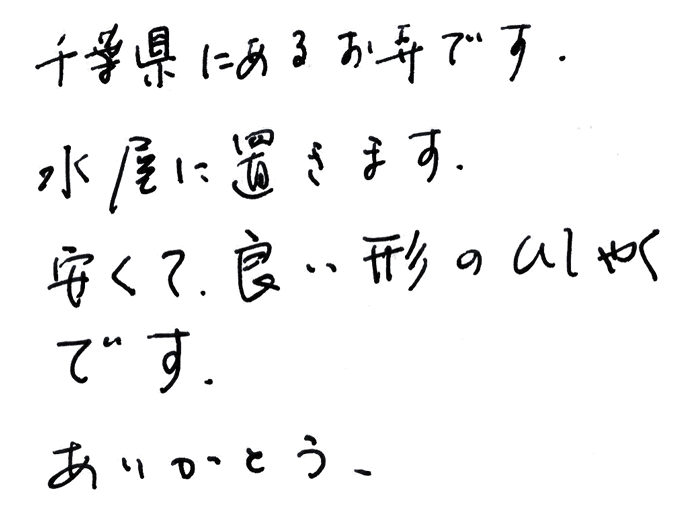 千葉県にあるお寺です.
水屋に置きます.
安くて.良い形のひしゃく
です.
ありがとう.